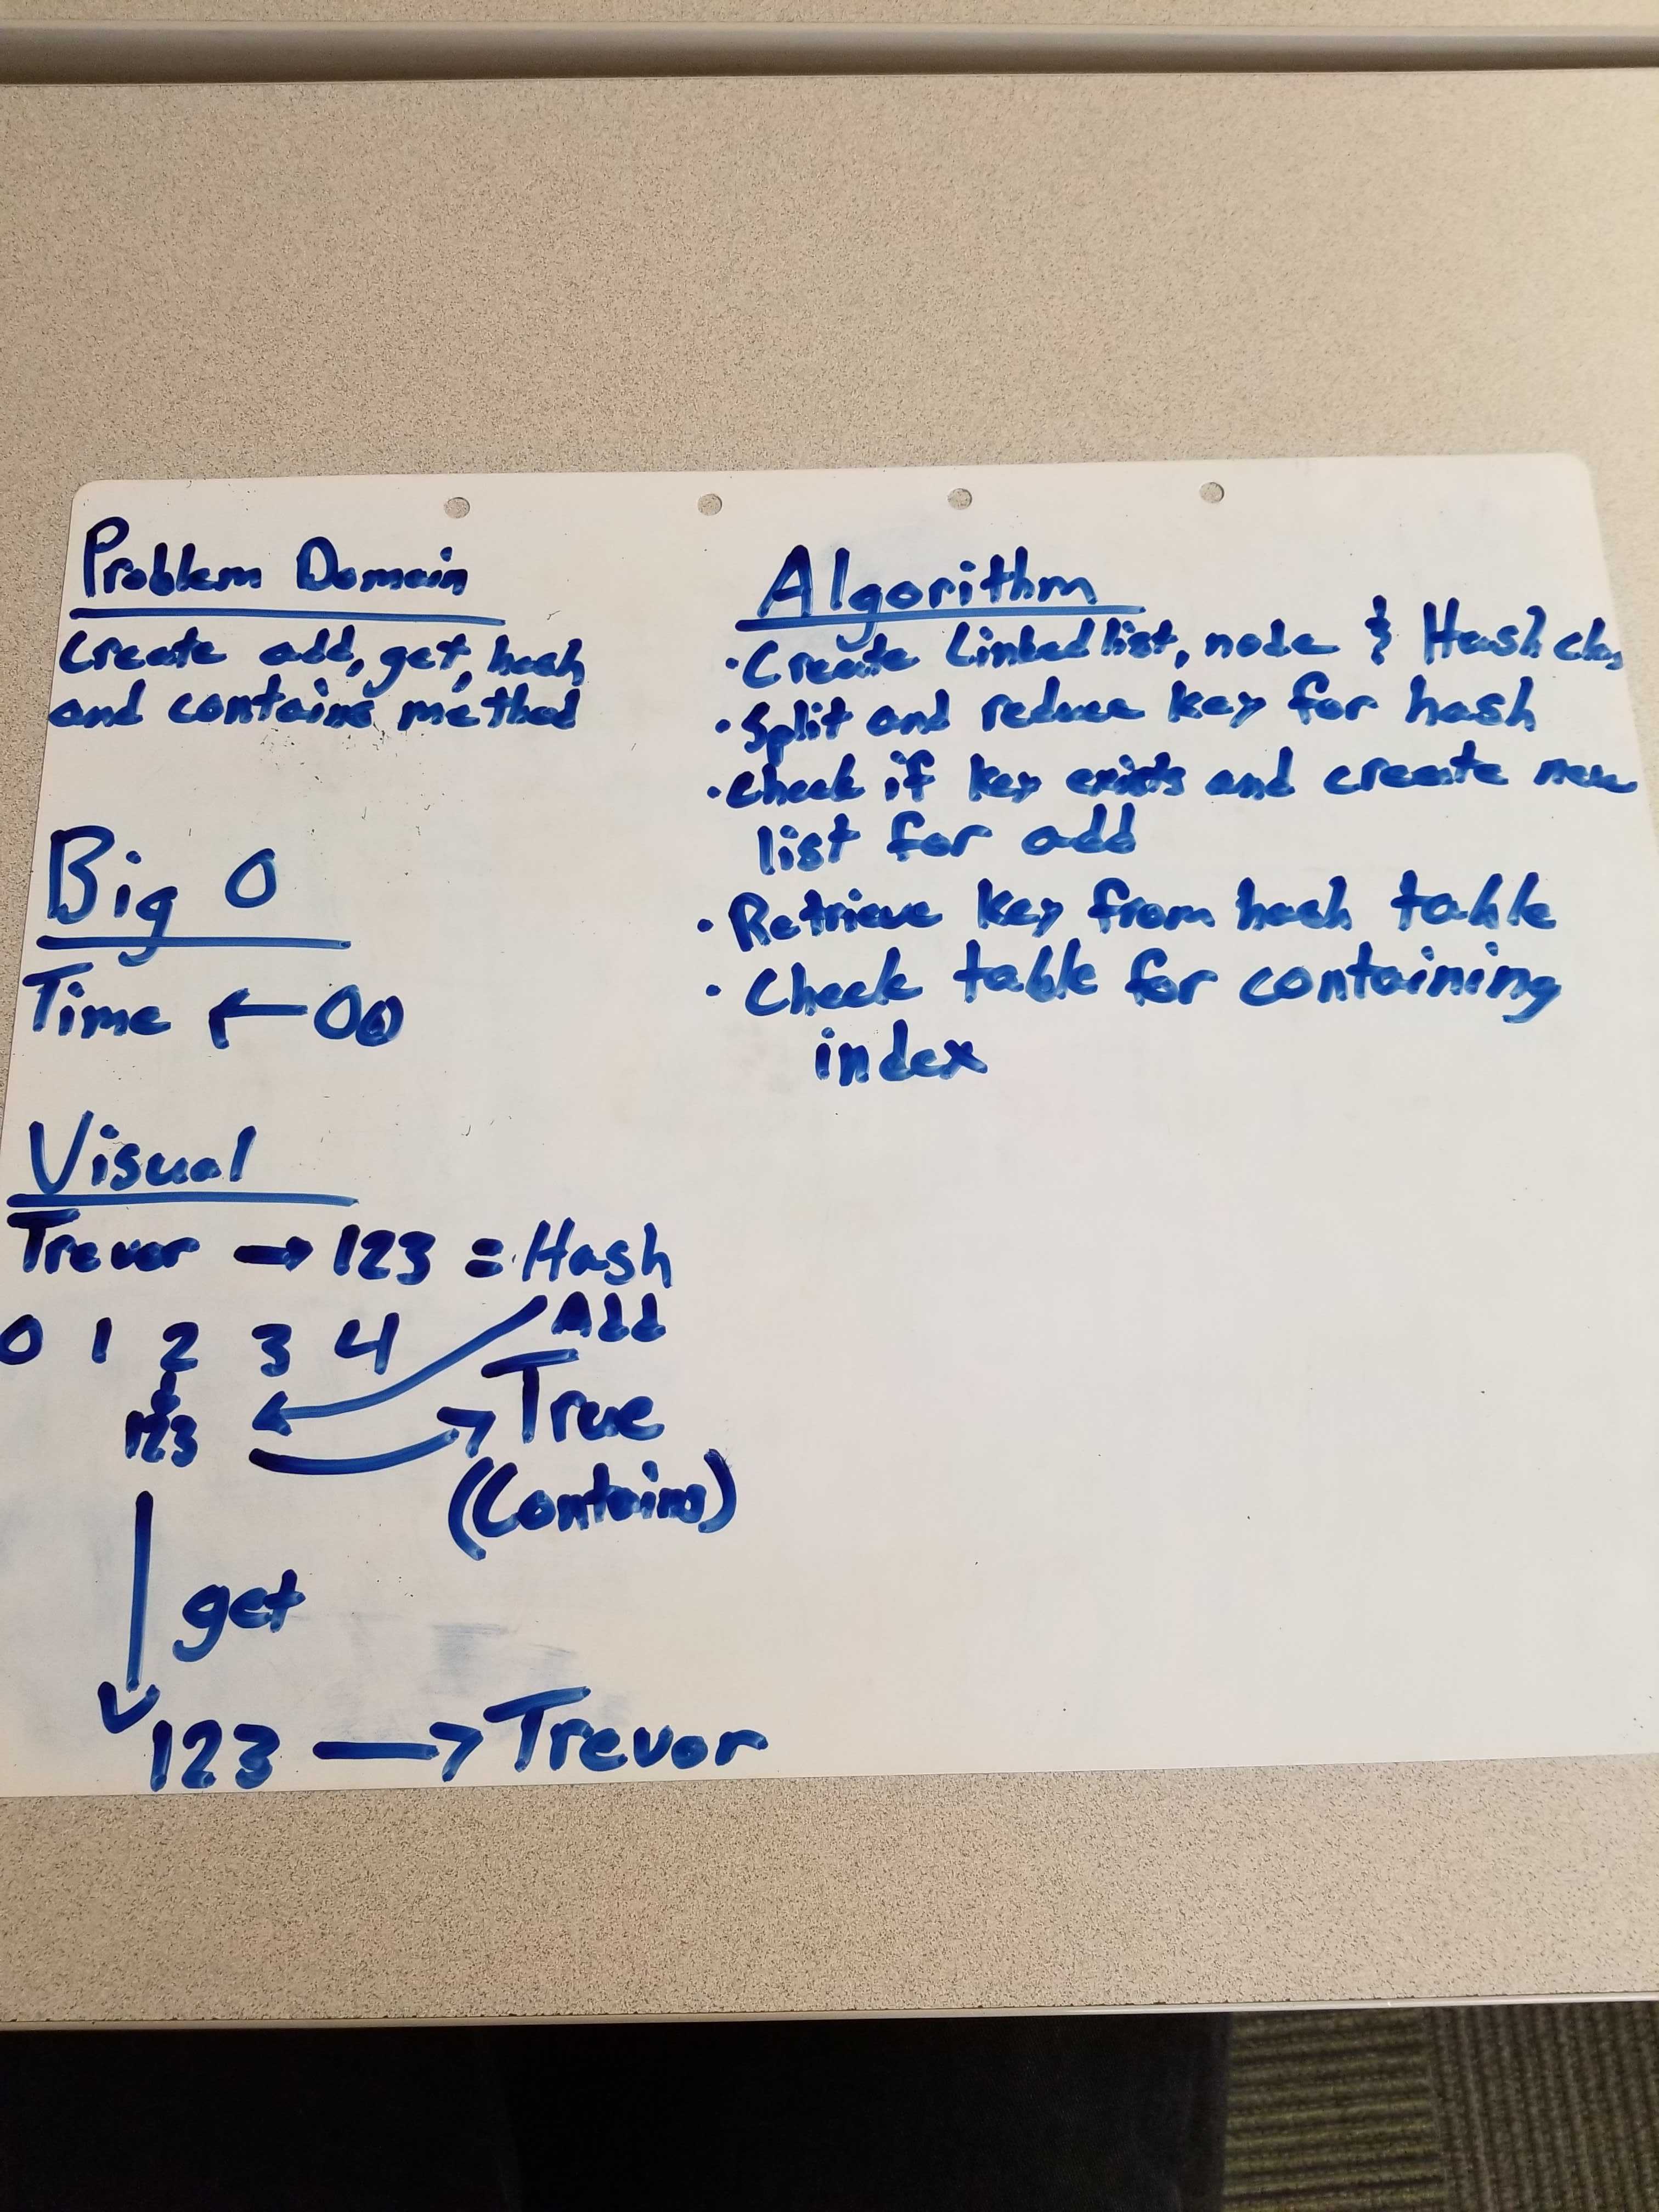 Problem Domain
Create add, get, hash
and contains method
Big O
Time ← O(1)
Visual
Trevor → 123 = Hash
Add
0 1 2 3 4
123
True
(Contains)
get
123 → Trevor
Algorithm
· Create Linked list, node & Hash
· Split and reduce key for hash
· Check if key exists and create new
list for add
· Retrieve key from hash table
· Check table for containing
index